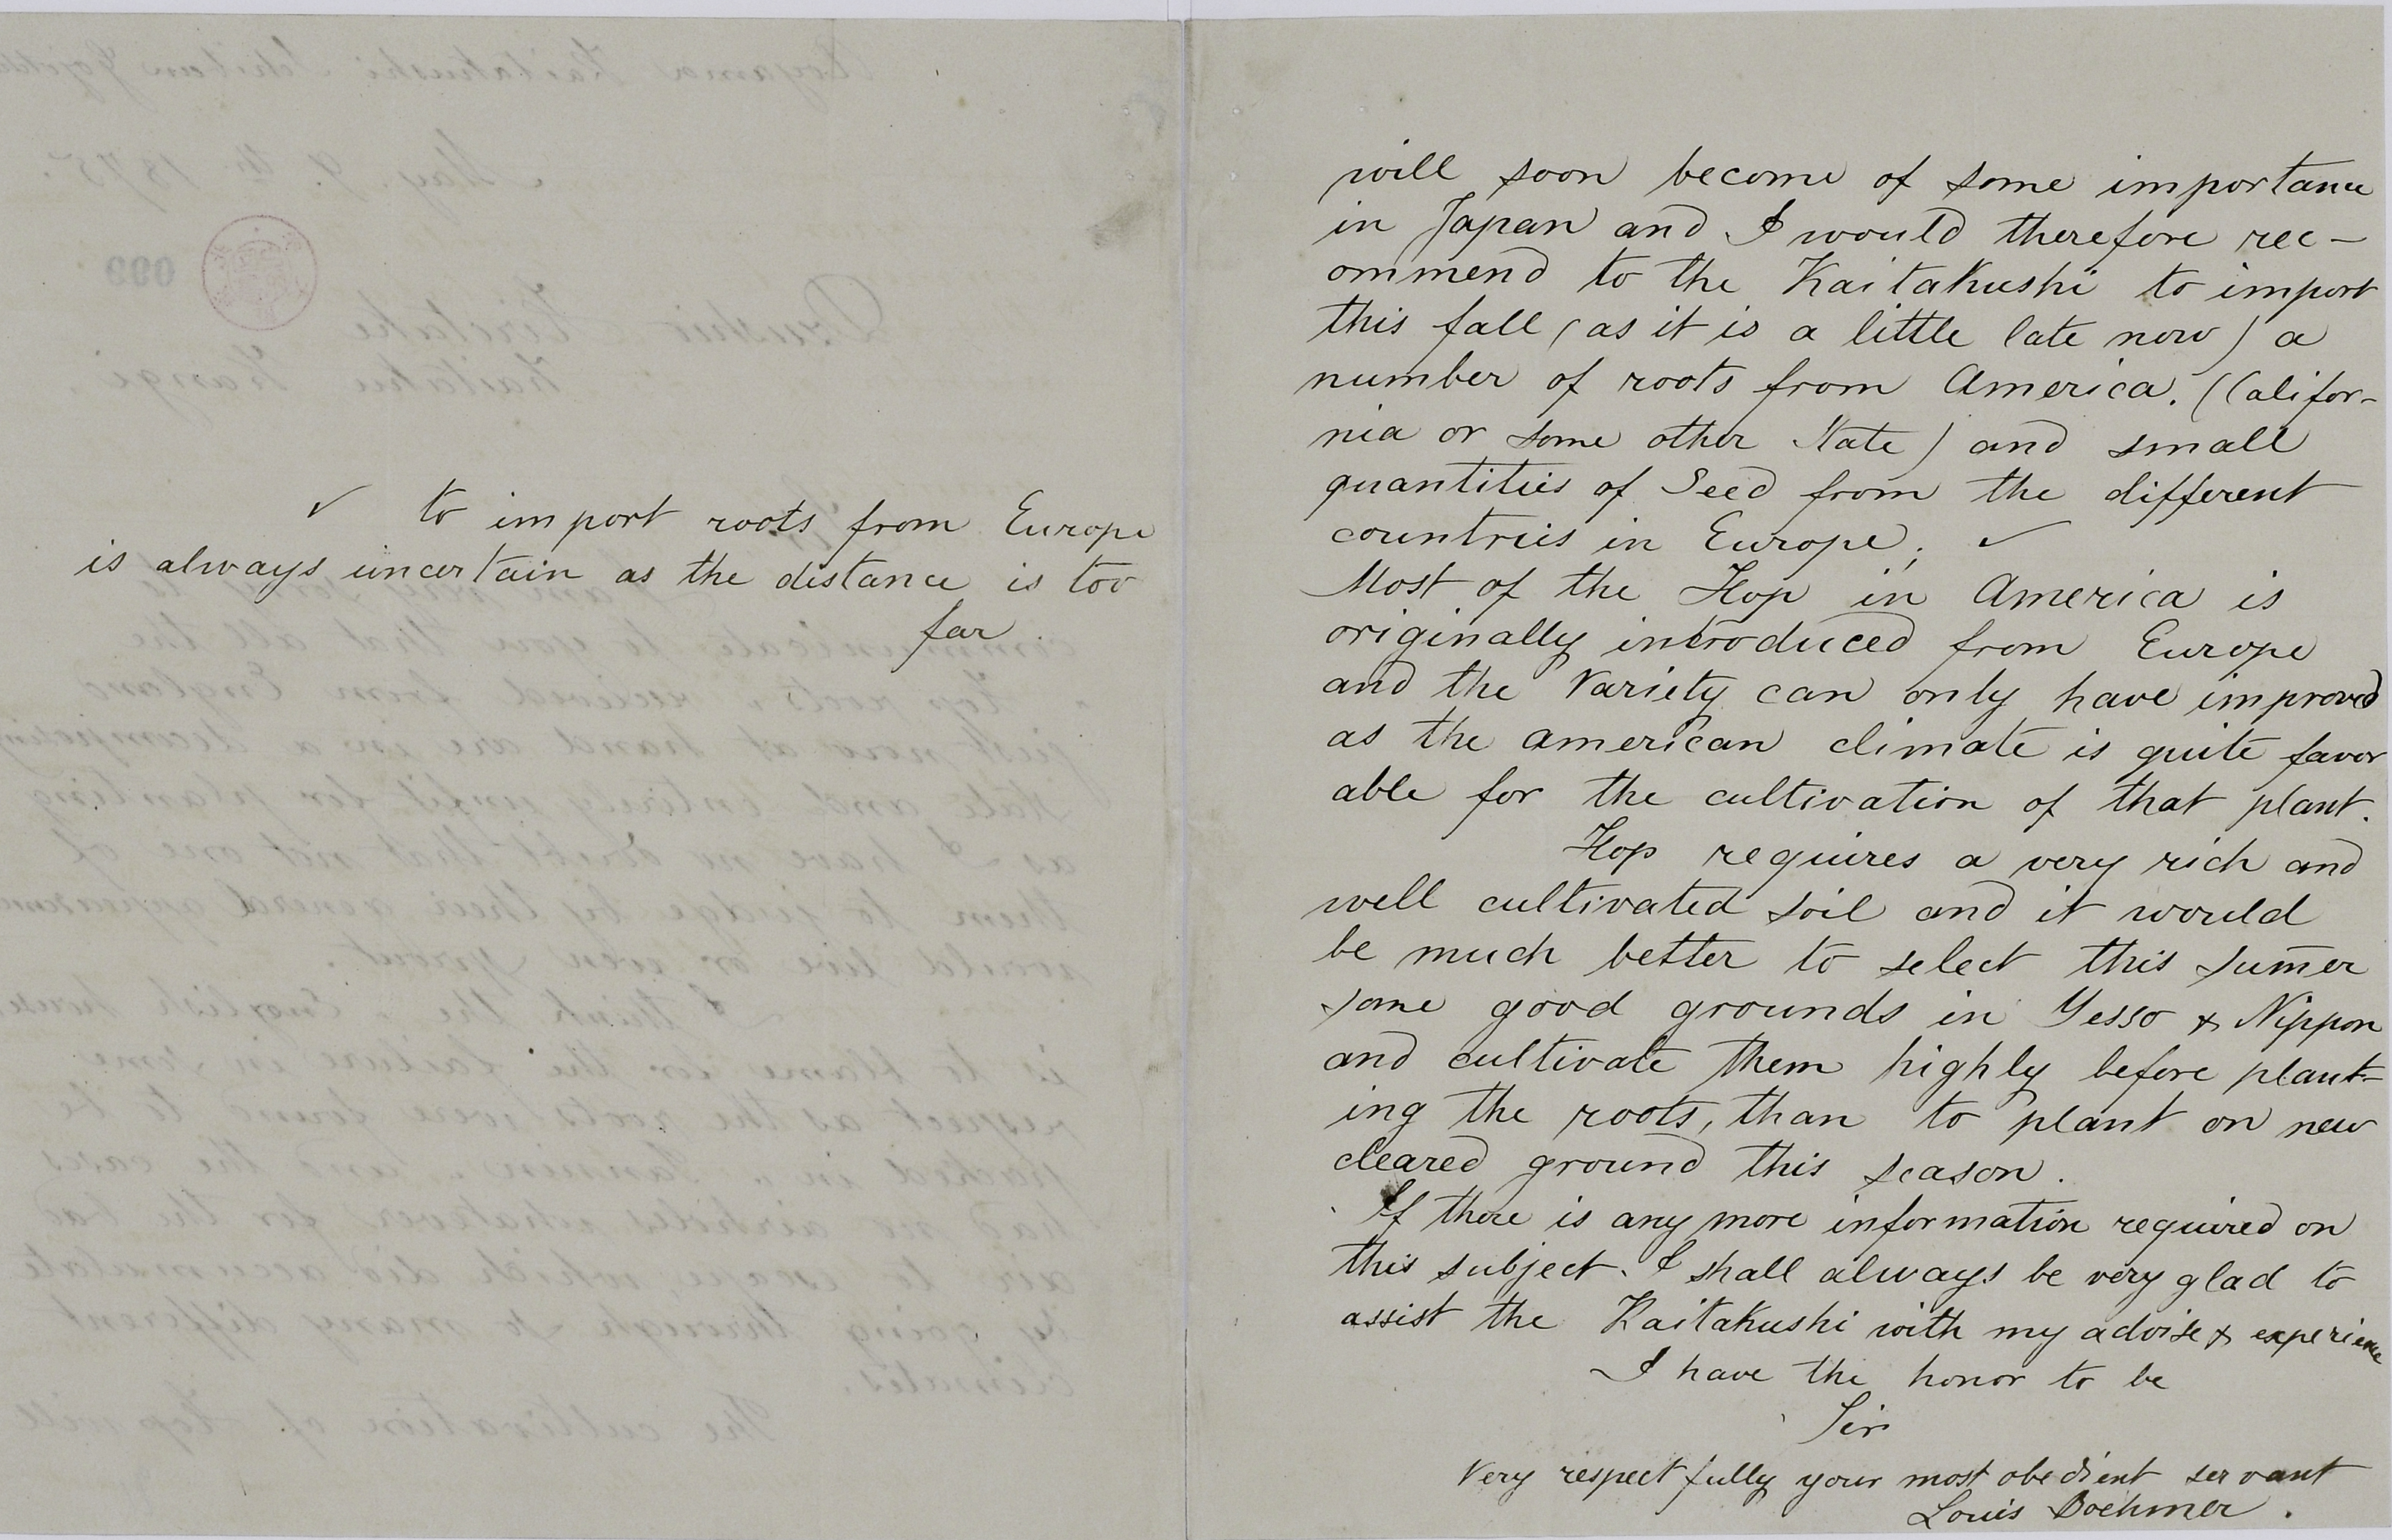 ✓ to import roots from Europe
is always uncertain as the distance is too
far.
will soon become of some importance
in Japan and I would therefore rec-
ommend to the Kaitakushi to import
this fall (as it is a little late now) a
number of roots from America. (Califor-
nia or some other State) and small
quantities of Seed from the different
countries in Europe; ✓
Most of the Hop in America is
originally introduced from Europe
and the Variety can only have improved
as the american climate is quite favor
able for the cultivation of that plant.
Hop requires a very rich and
well cultivated soil and it would
be much better to select this sum̄er
some good grounds in Yesso & Nippon
and cultivate them highly before plant-
ing the roots, than to plant on new
cleared ground this season.
If there is any more information required on
this subject. I shall always be very glad to
assist the Kaitakushi with my advise & experience
I have the honor to be
Sir
Very respectfully your most obedient servant
Louis Boehmer.